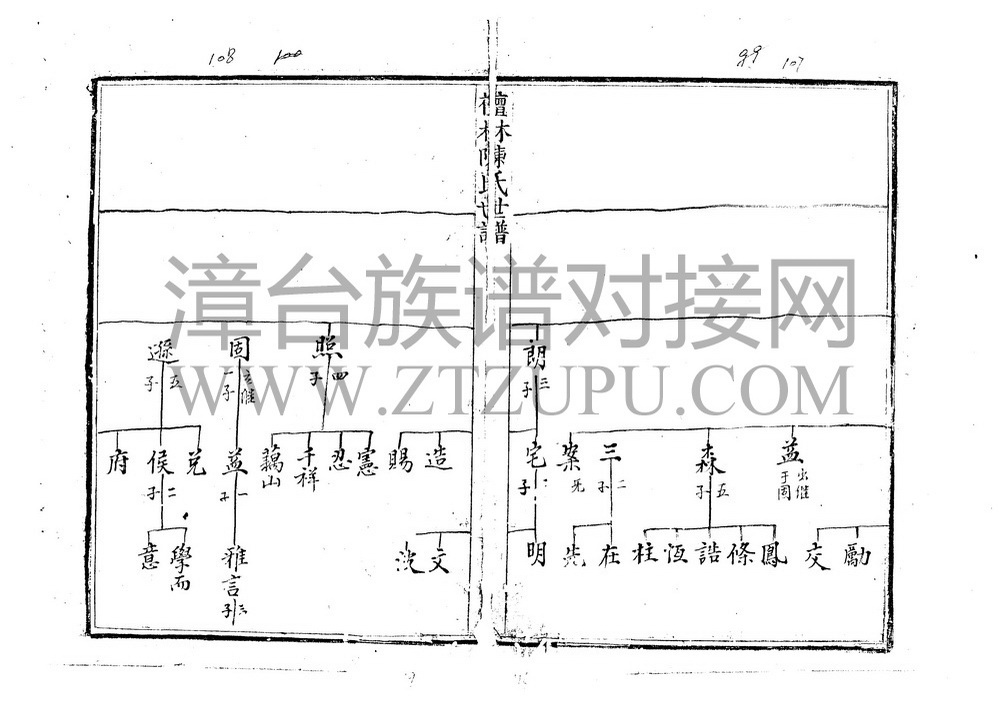 108
99 107
檀林陳氏世譜
漳台族谱对接网
WWW.ZTZUPU.COM
朗
三子
照
四子
固
立繼
一子
遜
五子
益
出繼
于固
森
五子
三
二子
案
宅
二子
造
賜
憲
忍
千祥
藕山
益
一子
兌
侯
二子
府
勵
交
鳳
條
誥
恆
柱
在
先
明
文
沈
雅言
三子
學而
意